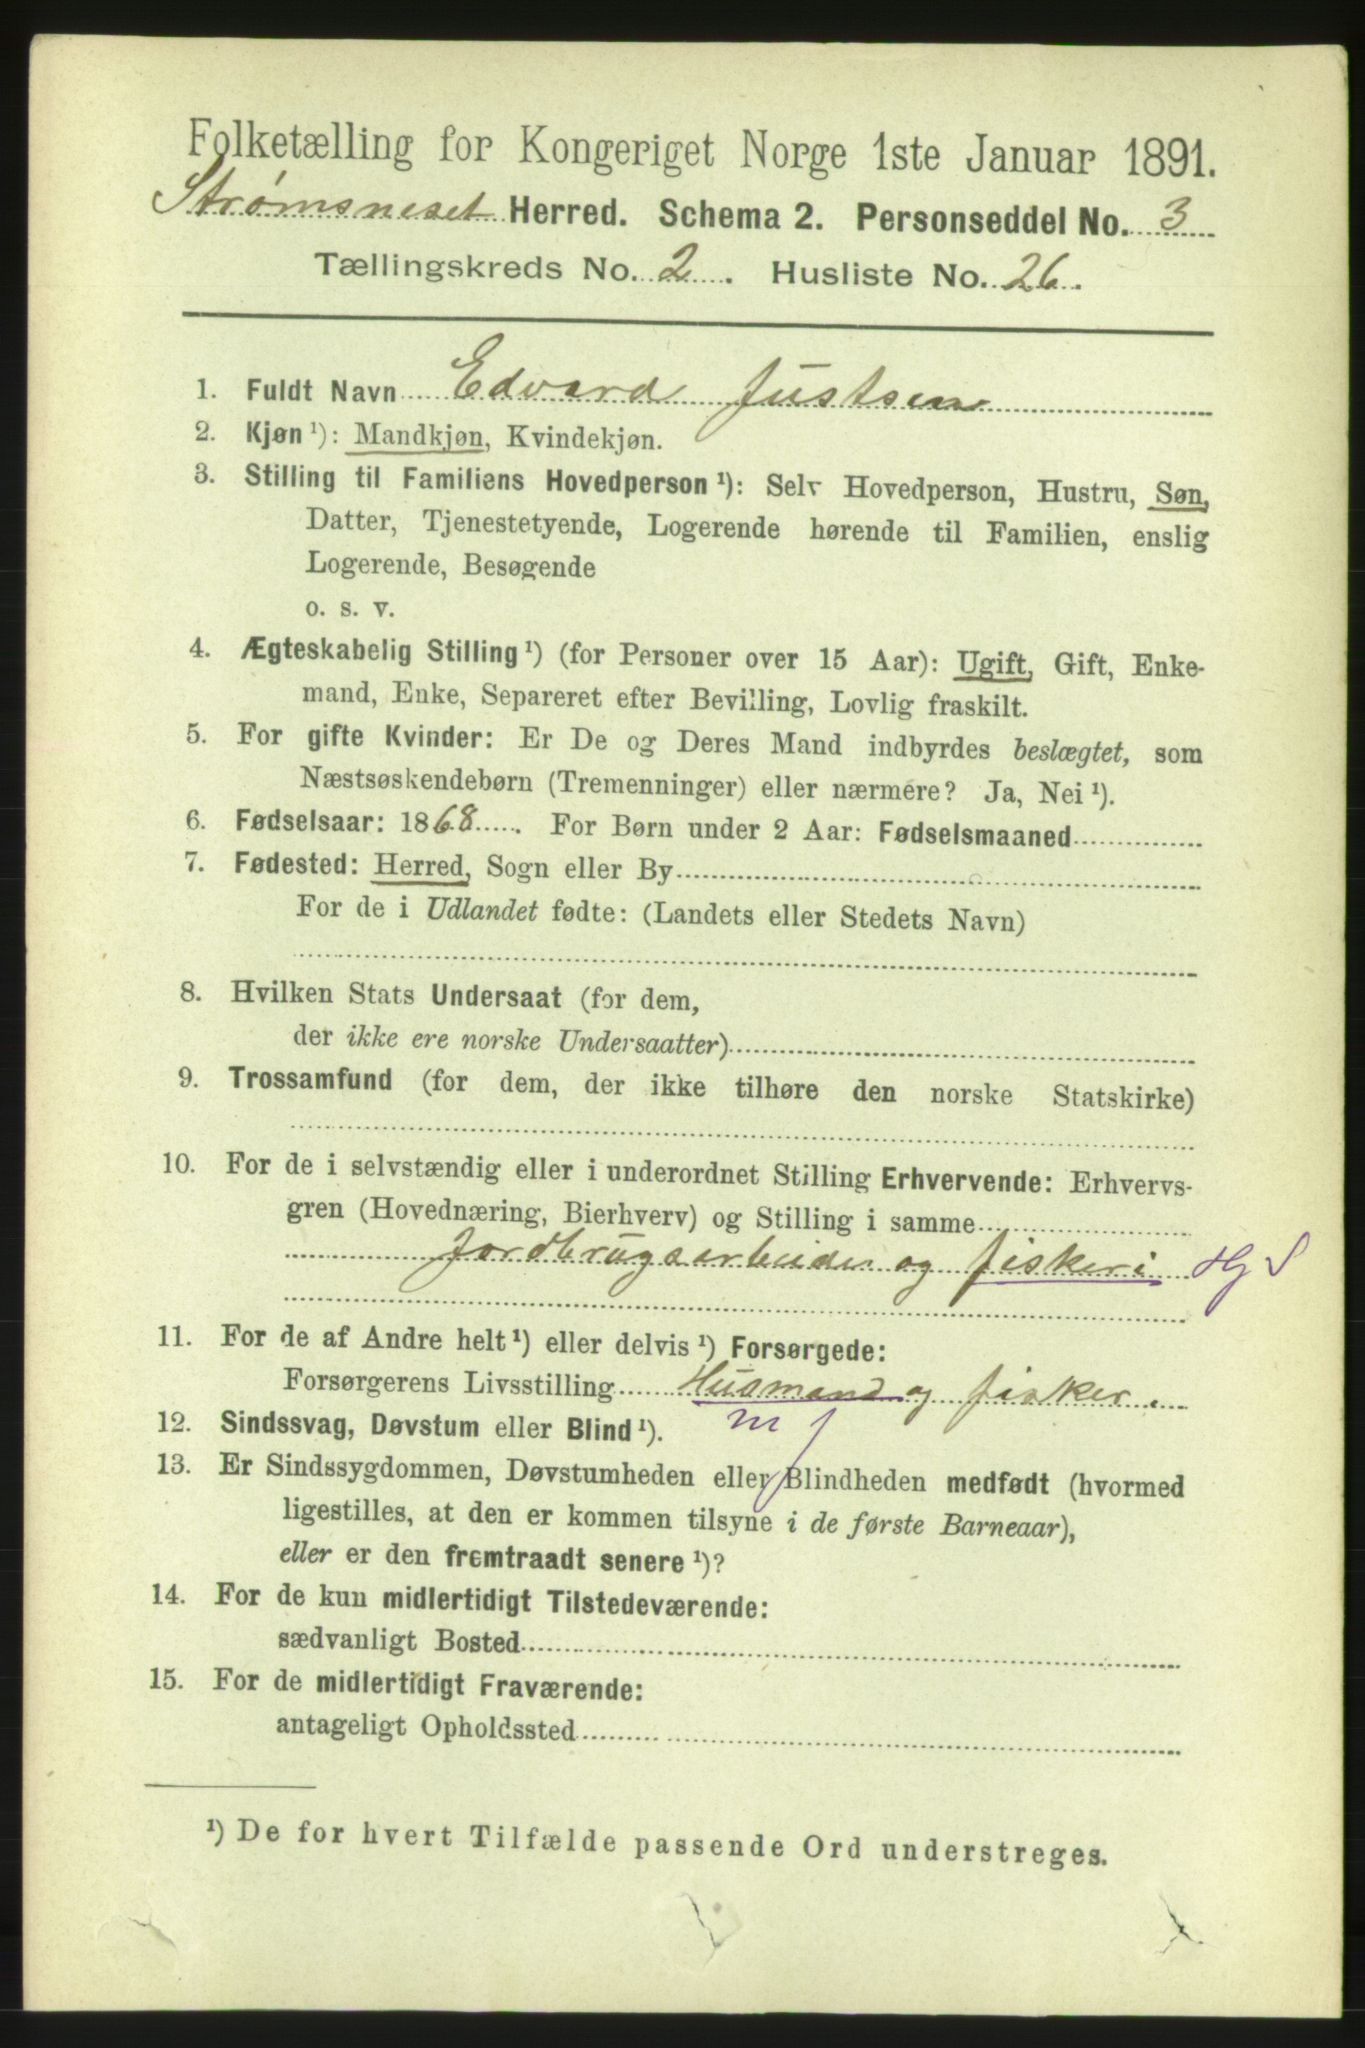 Folketælling for Kongeriget Norge 1ste Januar 1891.
Strømsneset Herred. Schema 2. Personseddel No. 3
Tællingskreds No. 2. Husliste No. 26.
1. Fuldt Navn Edvard Justsen
2. Kjøn¹): Mandkjøn, Kvindekjøn.
3. Stilling til Familiens Hovedperson¹): Selv Hovedperson, Hustru, Søn,
Datter, Tjenestetyende, Logerende hørende til Familien, enslig
Logerende, Besøgende
o. s. v.
4. Ægteskabelig Stilling¹) (for Personer over 15 Aar): Ugift, Gift, Enke-
mand, Enke, Separeret efter Bevilling, Lovlig fraskilt.
5. For gifte Kvinder: Er De og Deres Mand indbyrdes beslægtet, som
Næstsøskendebørn (Tremenninger) eller nærmere? Ja, Nei¹).
6. Fødselsaar: 1868. For Børn under 2 Aar: Fødselsmaaned
7. Fødested: Herred, Sogn eller By
For de i Udlandet fødte: (Landets eller Stedets Navn)
8. Hvilken Stats Undersaat (for dem,
der ikke ere norske Undersaatter)
9. Trossamfund (for dem, der ikke tilhøre den norske Statskirke)
10. For de i selvstændig eller i underordnet Stilling Erhvervende: Erhvervs-
gren (Hovednæring, Bierhverv) og Stilling i samme
Jordbrugsarbeider og fiskeri Hg S
11. For de af Andre helt¹) eller delvis¹) Forsørgede:
Forsørgerens Livsstilling Husmand og fisker.
12. Sindssvag, Døvstum eller Blind¹). m f
13. Er Sindssygdommen, Døvstumheden eller Blindheden medfødt (hvormed
ligestilles, at den er kommen tilsyne i de første Barneaar),
eller er den fremtraadt senere¹)?
14. For de kun midlertidigt Tilstedeværende:
sædvanligt Bosted
15. For de midlertidigt Fraværende:
antageligt Opholdssted
¹) De for hvert Tilfælde passende Ord understreges.